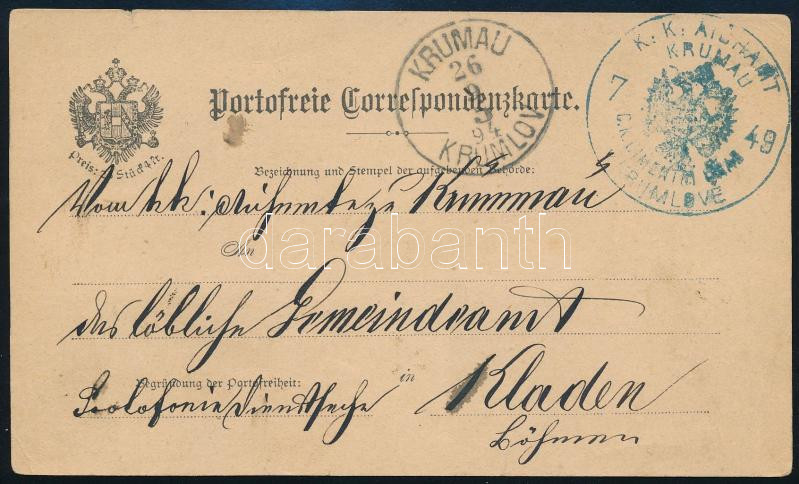 KRUMAU
26
9
94
KRUMLOV
K. K. AICHAMT
KRUMAU
7
49
C.K. CIMENTNÍ
KRUMLOVĚ
Portofreie Correspondenzkarte.
Preis: Stück 4 kr.
Bezeichnung und Stempel der aufgebenden Behörde:
Vom kk: Aichamte zu Krummau
An
darabanth
das löbliche Gemeindeamt
Begründung der Portofreiheit:
in
Portofreie Dienstsache
Kladen
Böhmen